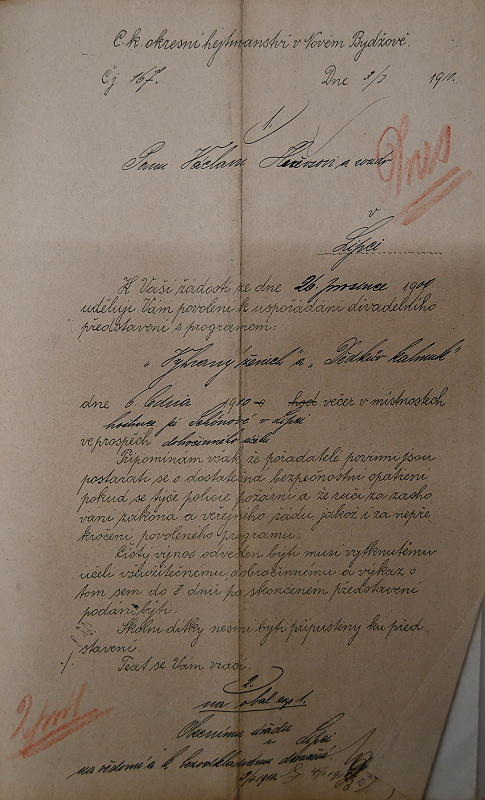 C. k. okresní hejtmanství v Novém Bydžově.
Čj. 167. Dne 3/1 1910.
1.
Panu Václavu a
Dnes
v
Lipsi
K Vaší žádosti ze dne 26. prosince 1909
uděluji Vám povolení k uspořádání divadelního
představení s programem:
„Vybraný ženich" a „Dědkův kalmuk"
dne 6. ledna 1910 večer v místnostech
hostince pí v Lipsi
ve prospěch dobročinného účele
Připomínám však, že pořadatelé povinni jsou
postarati se o dostatečná bezpečnostní opatření
pokud se týče policie požární a že ručí za zacho
vání zákona a veřejného řádu jakož i za nepře
kročení povoleného programu.
Čistý výnos odveden býti musí vytknutému
účeli všeužitečnému, dobročinnému a výkaz o
tom sem do 8 dnů po skončeném představení
podán býti.
Školní dítky nesmí býti připuštěny ku před
stavení.
Text se Vám vrací.
2.
na obal exp 1.
Obecnímu úřadu
v Lipsi
na vědomí a k bezodkladnému
3/1 1910. 4/1